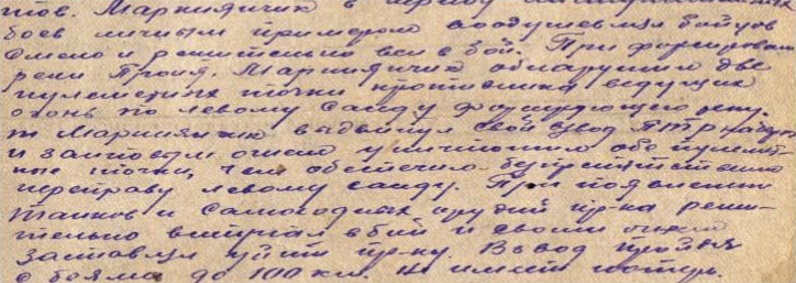 тов. Маркиячик в период
боев личным примером воодушевляя бойцов
смело и решительно вел в бой. При форсировании
реки Проня. Маркиячик обнаружил две
пулеметных точки противника ведущих
огонь по левому соседу форсирующего реку.
т Маркиячик выдвинул свой взвод ПТР
и залповым огнем уничтожил обе пулемет-
ные точки, чем обеспечил беспрепятственно
переправу левому соседу. При появлении
танков и самоходных орудий пр-ка реши-
тельно вступал в бой и своим огнем
заставлял уйти пр-ку. Взвод пройдя
с боями до 100 км. не имеет потерь.